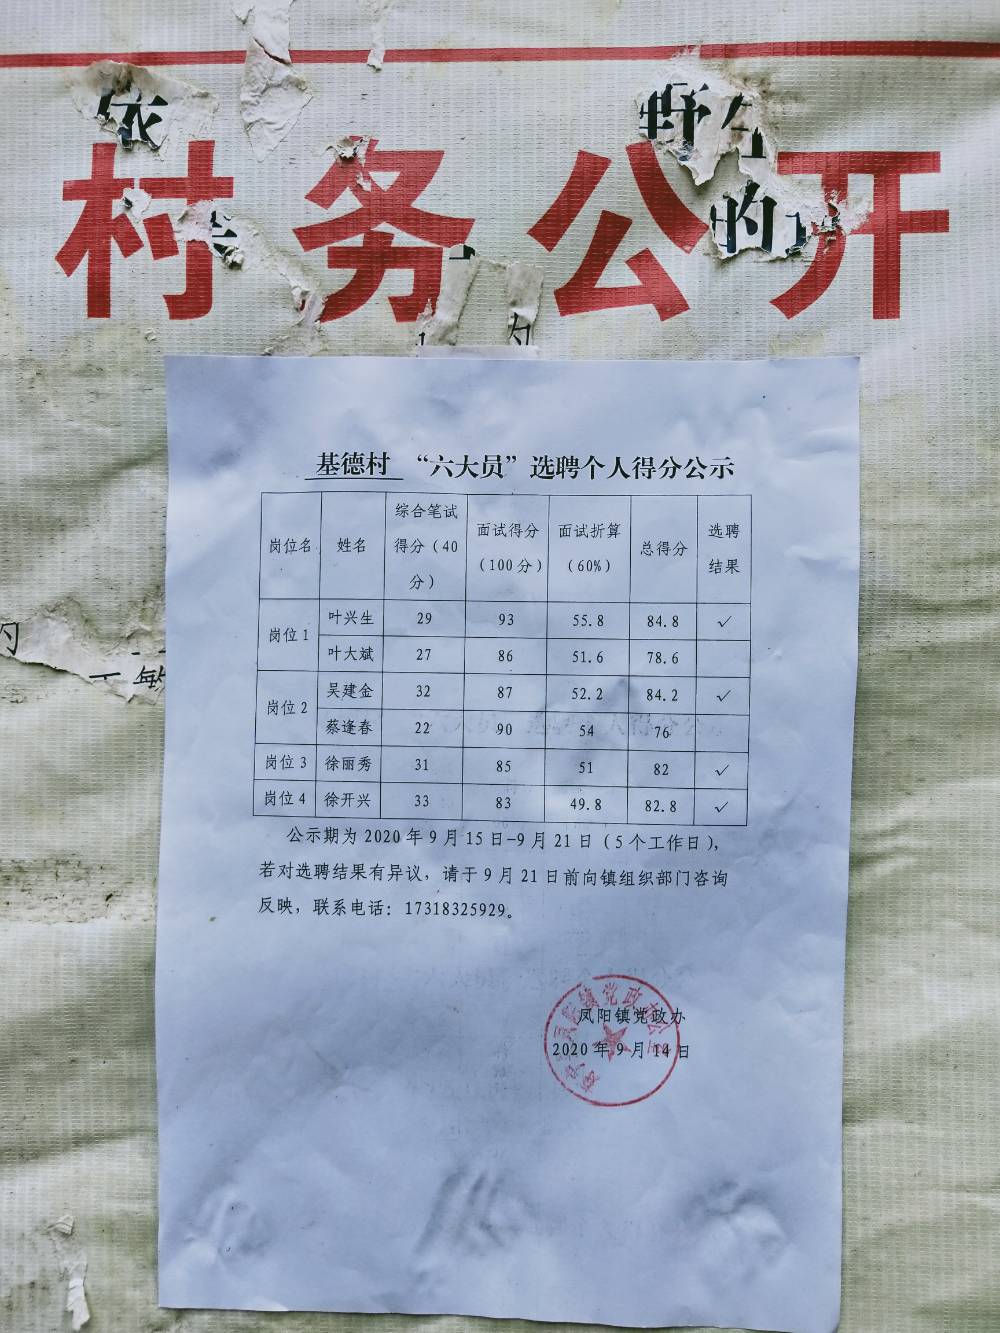 依
野外
村务公开
的
基德村 “六大员”选聘个人得分公示
岗位名 姓名 综合笔试得分（40分） 面试得分（100分） 面试折算（60%） 总得分 选聘结果
岗位1 叶兴生 29 93 55.8 84.8 ✓
叶大斌 27 86 51.6 78.6
岗位2 吴建金 32 87 52.2 84.2 ✓
蔡逢春 22 90 54 76
岗位3 徐丽秀 31 85 51 82 ✓
岗位4 徐开兴 33 83 49.8 82.8 ✓
公示期为2020年9月15日-9月21日（5个工作日），
若对选聘结果有异议，请于9月21日前向镇组织部门咨询
反映，联系电话：17318325929。
凤阳镇党政办
2020年9月14日